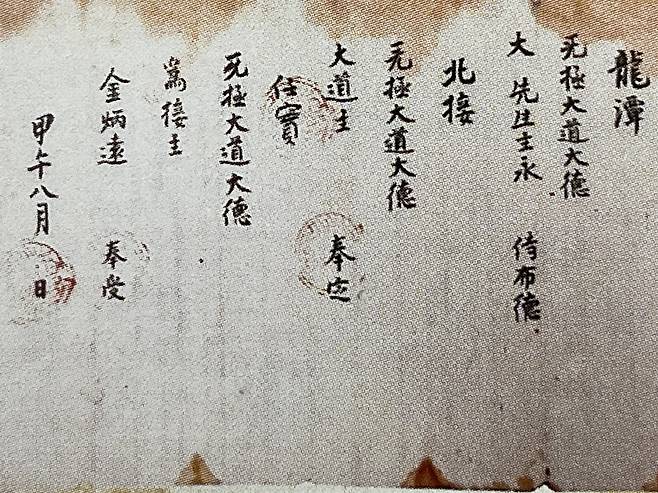 龍潭
无極大道大德
大 先生主永 侍布德
北接
无極大道大德
大道主 奉
任實
无極大道大德
接主
金炳遠 奉受
甲午八月 日